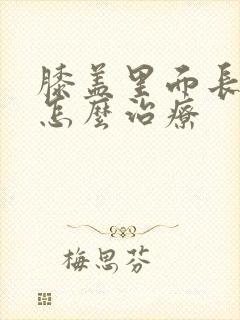 膝盖里而長
怎麼治療
梅思芬